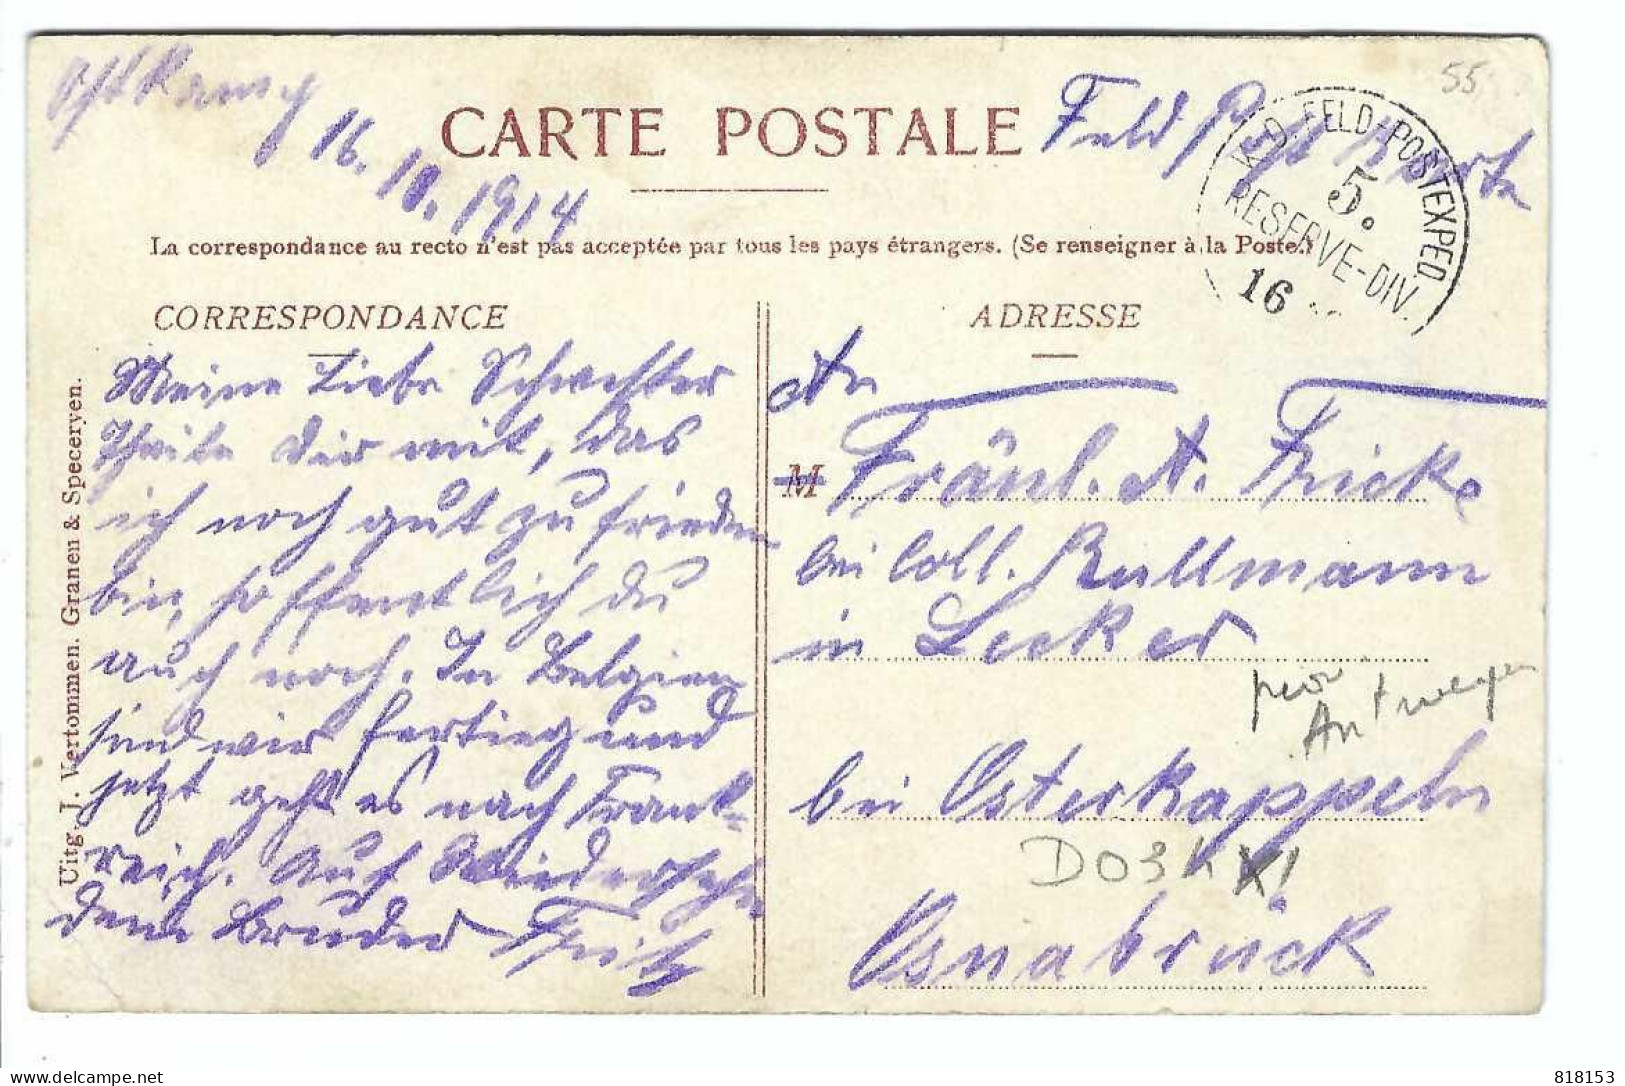 16. 10. 1914
CARTE POSTALE
Feld Post Karte
55
K.D. FELD-POSTEXPED.
5.
RESERVE-DIV.
16
La correspondance au recto n'est pas acceptée par tous les pays étrangers. (Se renseigner à la Poste.)
CORRESPONDANCE
Meine Liebe Schwester
Theile Dir mit, das
ich noch gut zufrieden
bin, hoffentlich du
auch noch. In Belgien
sind wir fertig und
jetzt geht es nach Frank-
reich. Auf Wiedersehn
dein Bruder Fritz
Uitg. J. Vertommen. Granen & Speceryen.
ADRESSE
An
M Fräul. A. Fricke
bei Coll. Rullmann
in Lecker
bei Osterkappeln
Osnabrück
Antwerpen
818153